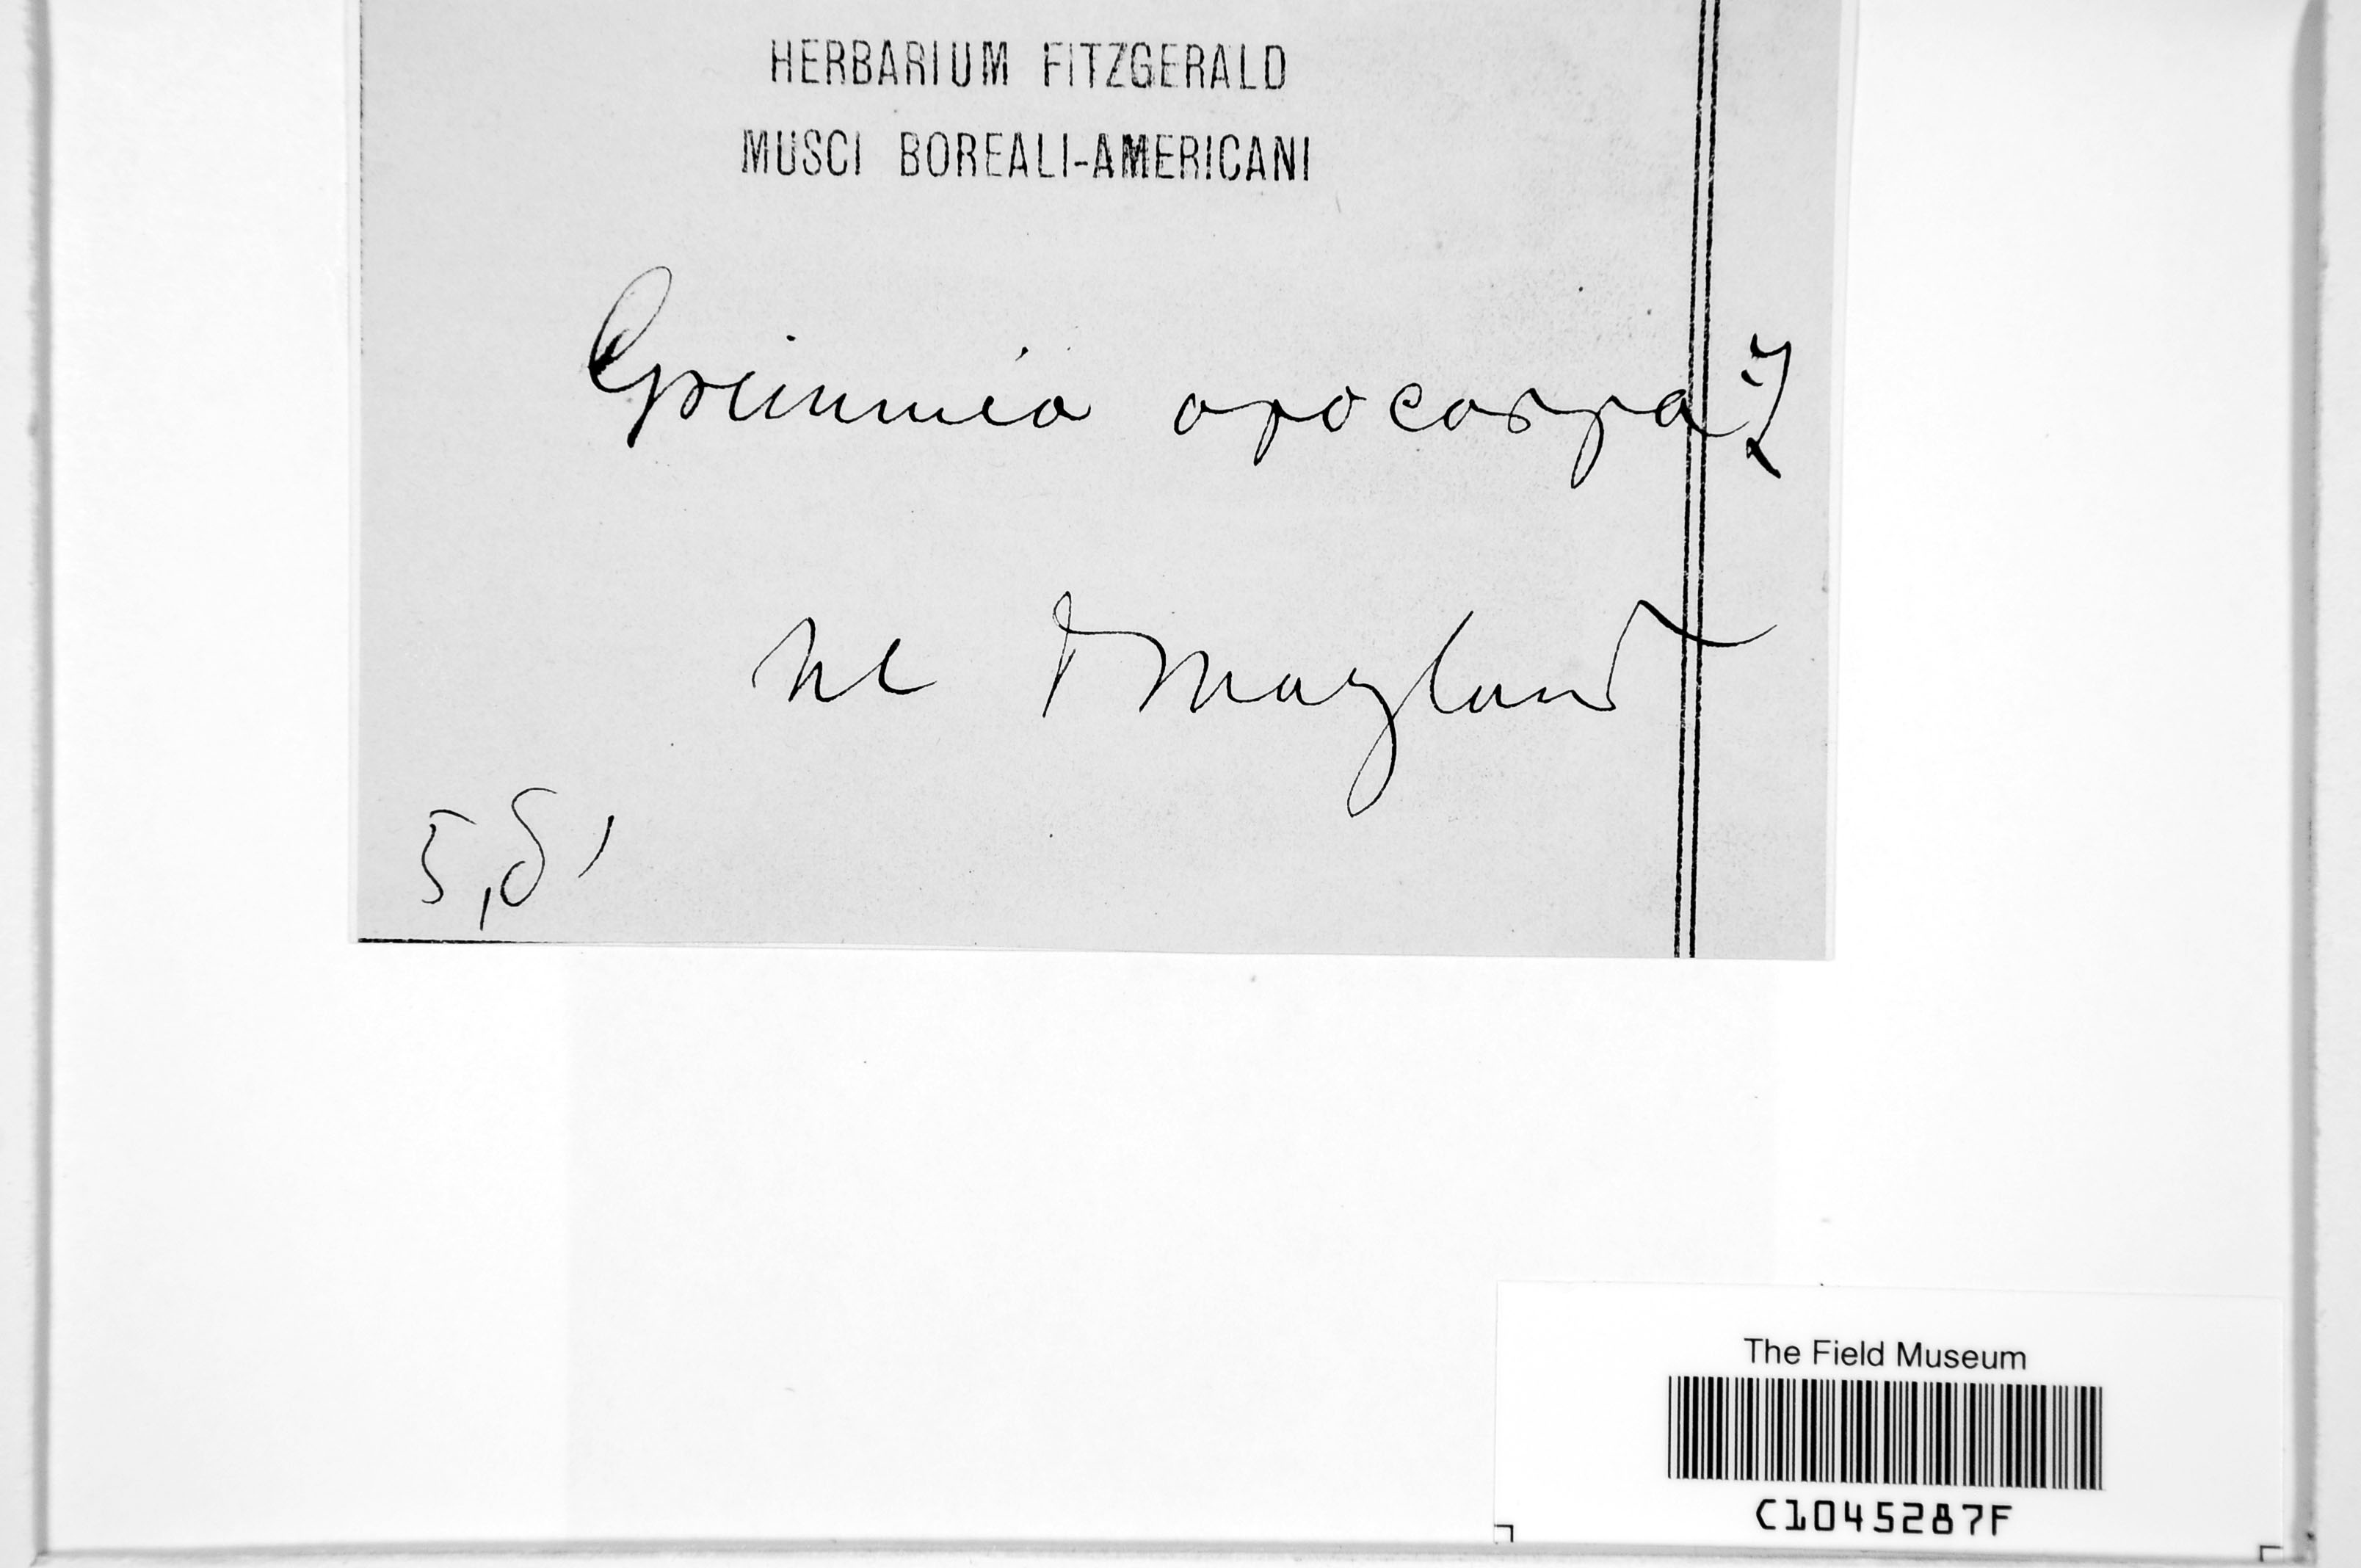 HERBARIUM FITZGERALD
MUSCI BOREALI-AMERICANI
Grimmia apocarpa
Maryland
The Field Museum
C1045287F